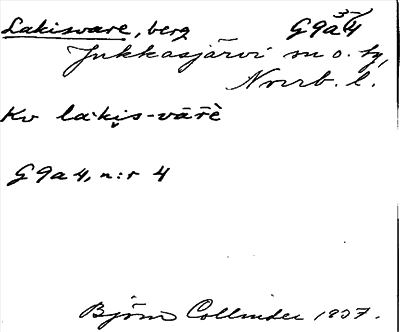 Lakisvare, berg G9a34
Jukkasjärvi sn o. tg,
Norrb. l.
Kv la·ki̮s-vārè
G9a4, n:r 4
Björn Collinder 1937.